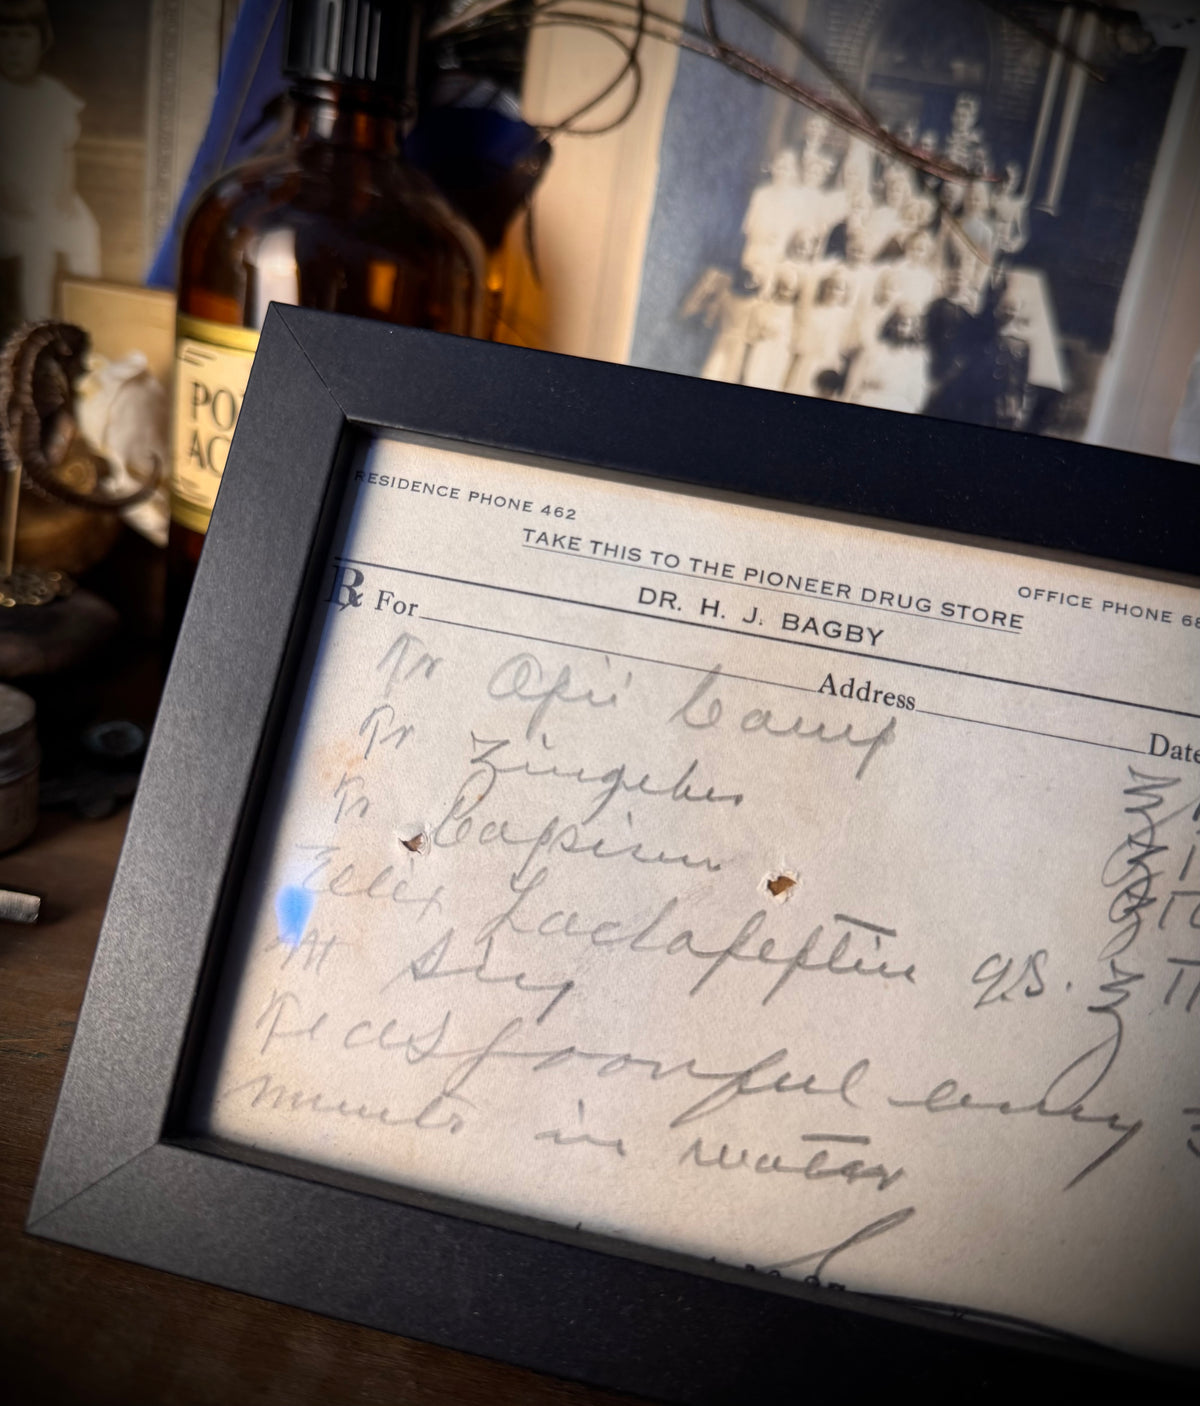 PO
AC
RESIDENCE PHONE 462
TAKE THIS TO THE PIONEER DRUG STORE
OFFICE PHONE 68
DR. H. J. BAGBY
℞ For Address Date
Tr Opii Camp
Tr Zingeber
Tr Capsicum
Elix Lactopeptin q.s.
Sig
Teaspoonful every
minutes in water